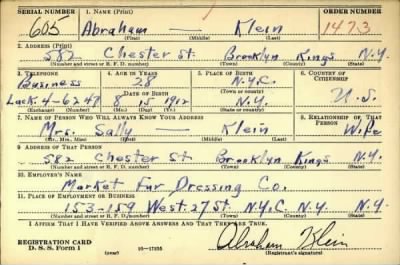 SERIAL NUMBER 1. NAME (Print) ORDER NUMBER
605 Abraham — Klein 1473
(First) (Middle) (Last)
2. ADDRESS (Print)
582 Chester St. Brooklyn Kings N.Y.
(Number and street or R. F. D. number) (Town) (County) (State)
3. TELEPHONE 4. AGE IN YEARS 5. PLACE OF BIRTH 6. COUNTRY OF CITIZENSHIP
Business 28 N.Y.C.
DATE OF BIRTH (Town or county)
Lack. 4-6247 8 15 1912 N.Y. U.S.
(Exchange) (Number) (Mo.) (Day) (Yr.) (State or country)
7. NAME OF PERSON WHO WILL ALWAYS KNOW YOUR ADDRESS 8. RELATIONSHIP OF THAT PERSON
Mrs. Sally — Klein Wife
(Mr., Mrs., Miss) (First) (Middle) (Last)
9. ADDRESS OF THAT PERSON
582 Chester St. Brooklyn Kings N.Y.
(Number and street or R. F. D. number) (Town) (County) (State)
10. EMPLOYER'S NAME
Market Fur Dressing Co.
11. PLACE OF EMPLOYMENT OR BUSINESS
153-159 West 27 St N.Y.C N.Y. N.Y.
(Number and street or R. F. D. number) (Town) (County) (State)
I AFFIRM THAT I HAVE VERIFIED ABOVE ANSWERS AND THAT THEY ARE TRUE.
REGISTRATION CARD
D. S. S. Form 1 (over) Abraham Klein
(Registrant's signature)